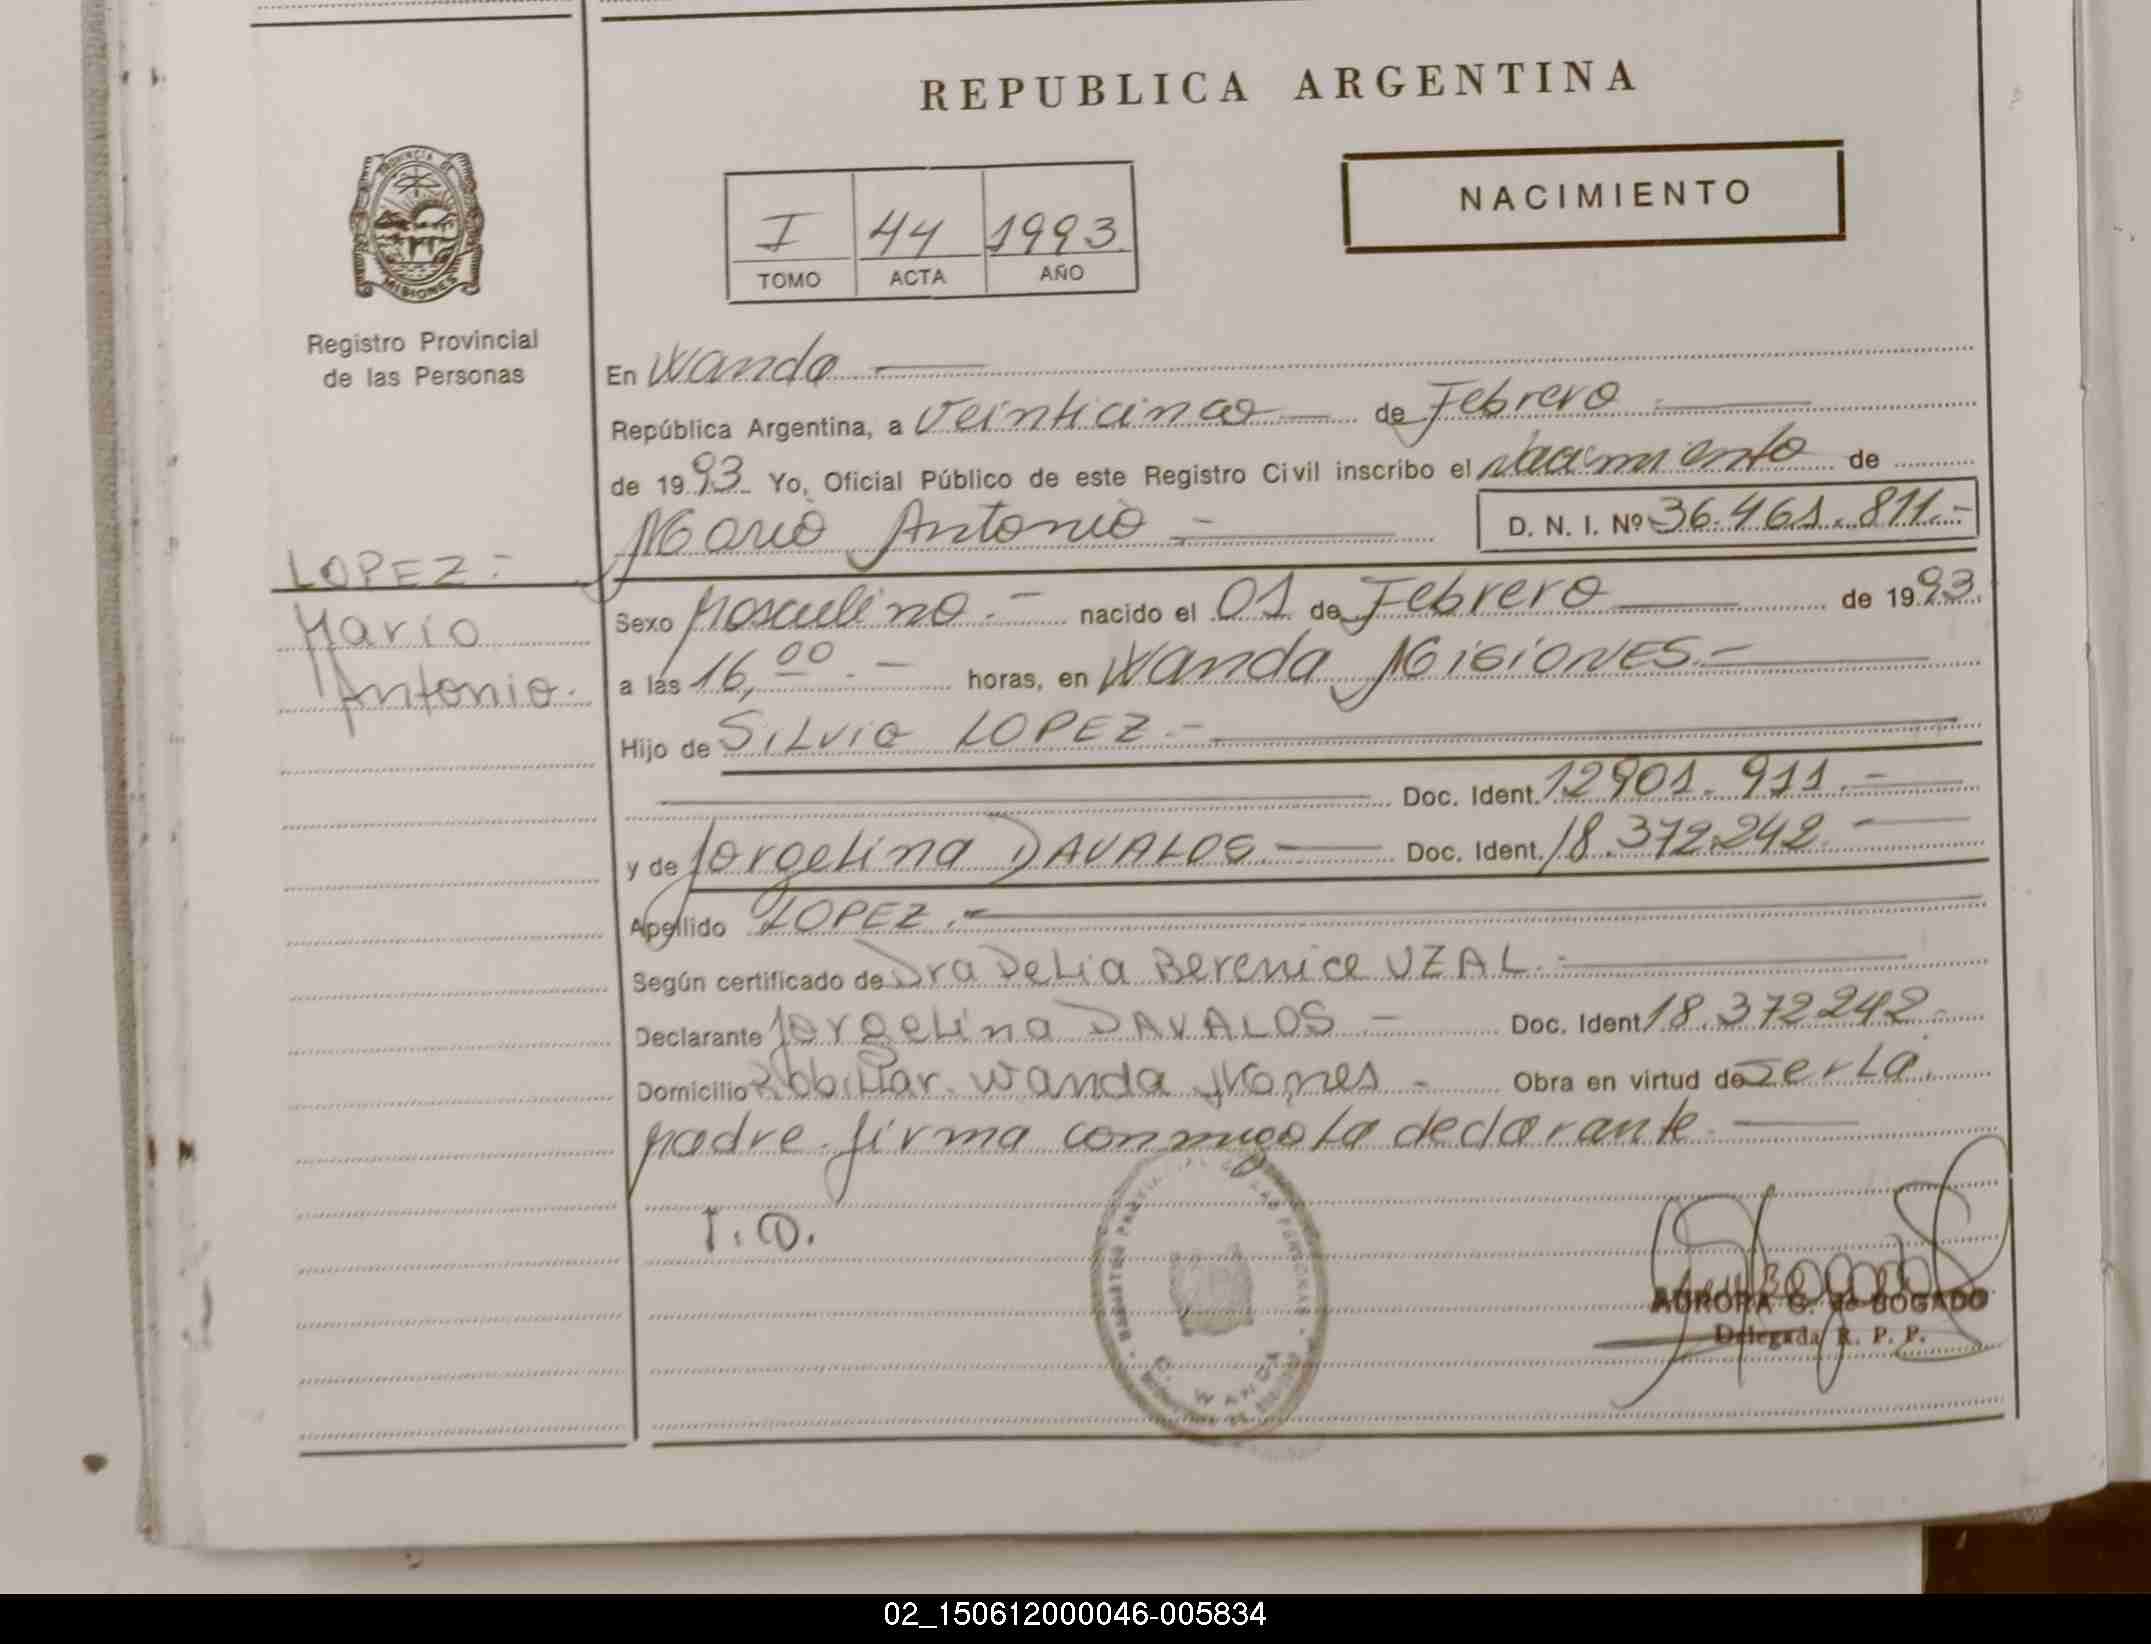 REPUBLICA ARGENTINA
NACIMIENTO
PROVINCIA DE
MISIONES
I 44 1993
TOMO ACTA AÑO
Registro Provincial
de las Personas
En Wanda
República Argentina, a Veinticinco de Febrero
de 1993 Yo, Oficial Público de este Registro Civil inscribo el Nacimiento de
Mario Antonio D. N. I. Nº 36.461.811.-
LOPEZ.-
Mario
Antonio.
Sexo Masculino.- nacido el 01 de Febrero de 1993
a las 16,00.- horas, en Wanda Misiones.-
Hijo de Silvio LOPEZ.-
Doc. Ident. 12901.911.-
y de Jorgelina DAVALOS Doc. Ident. 18.372.242.-
Apellido LOPEZ.-
Según certificado de Dra Delia Berenice UZAL.-
Declarante Jorgelina DAVALOS - Doc. Ident. 18.372242.-
Domicilio Wanda - Obra en virtud de ser La
Madre. firma conmigo La declarante.
J.D.
WANDA
AURORA G. de BOGADO
Delegada R. P. P.
02_150612000046-005834